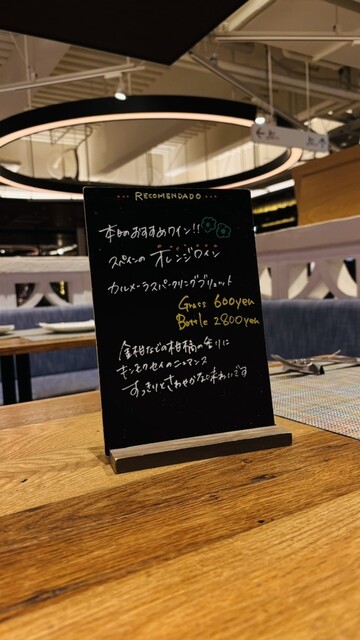 RECOMENDADO
本日のおすすめワイン!!
スペインの オレンジワイン
カルメーラスパークリングブリュット
Grass 600yen
Botele 2800yen
金柑などの柑橘の香りに
キンモクセイのニュアンス
すっきりとさわやかな味わいです